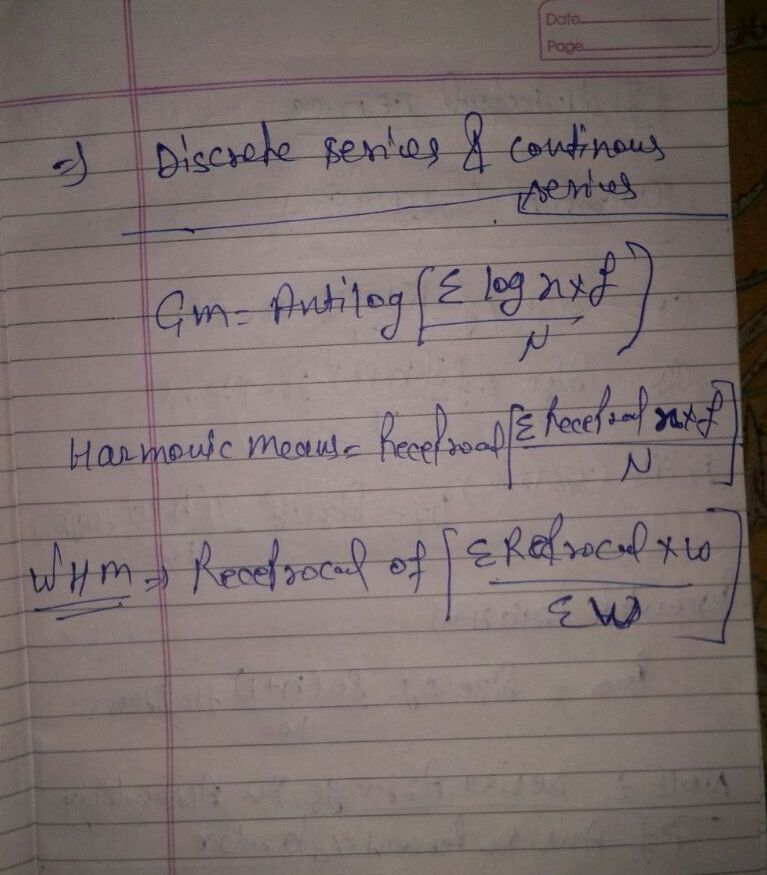 Date
Page
⇒ Discrete series & continous
series
Gm = Antilog [Σ log x × f / N]
Harmonic Mean = Receprocal [Σ Receprocal x × f / N]
WHM ⇒ Receprocal of [Σ Reprocal × w / Σw]